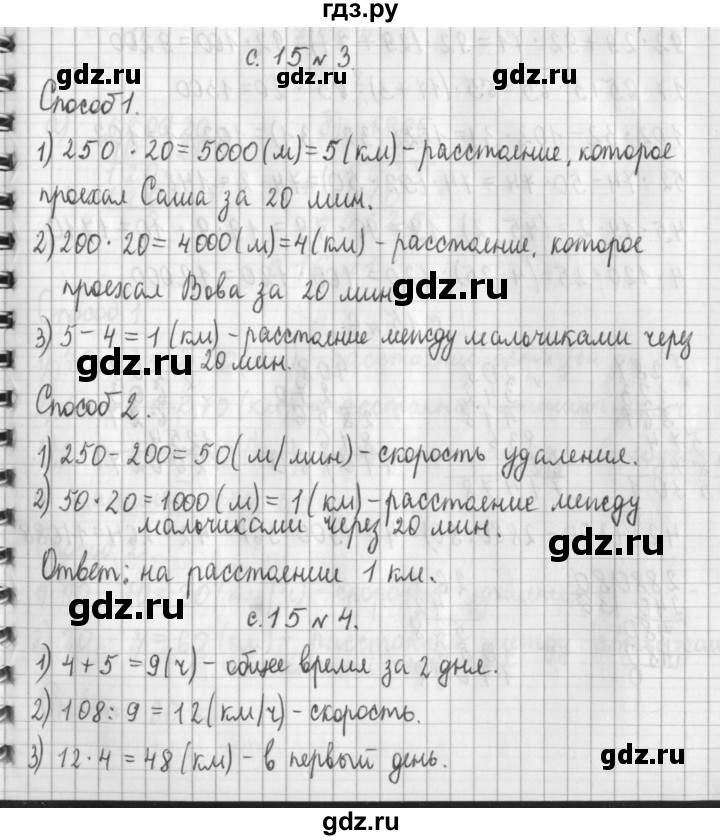 гдз.ру
с. 15 № 3.
gdz.ru gdz.ru
Способ 1.
1) 250 · 20 = 5000 (м) = 5 (км) – расстояние, которое
gdz.ru gdz.ru
проехал Саша за 20 мин.
2) 200 · 20 = 4000 (м) = 4 (км) – расстояние, которое
проехал Вова за 20 мин
gdz.ru
3) 5 – 4 = 1 (км) – расстояние между мальчиками через
20 мин.
gdz.ru
Способ 2.
1) 250 – 200 = 50 (м/мин) – скорость удаления.
2) 50 · 20 = 1000 (м) = 1 (км) – расстояние между
мальчиками через 20 мин.
gdz.ru
Ответ: на расстоянии 1 км.
gdz.ru
с. 15 № 4.
1) 4 + 5 = 9 (ч) – общее время за 2 дня.
2) 108 : 9 = 12 (км/ч) – скорость.
3) 12 · 4 = 48 (км) – в первый день.
gdz.ru
gdz.ru